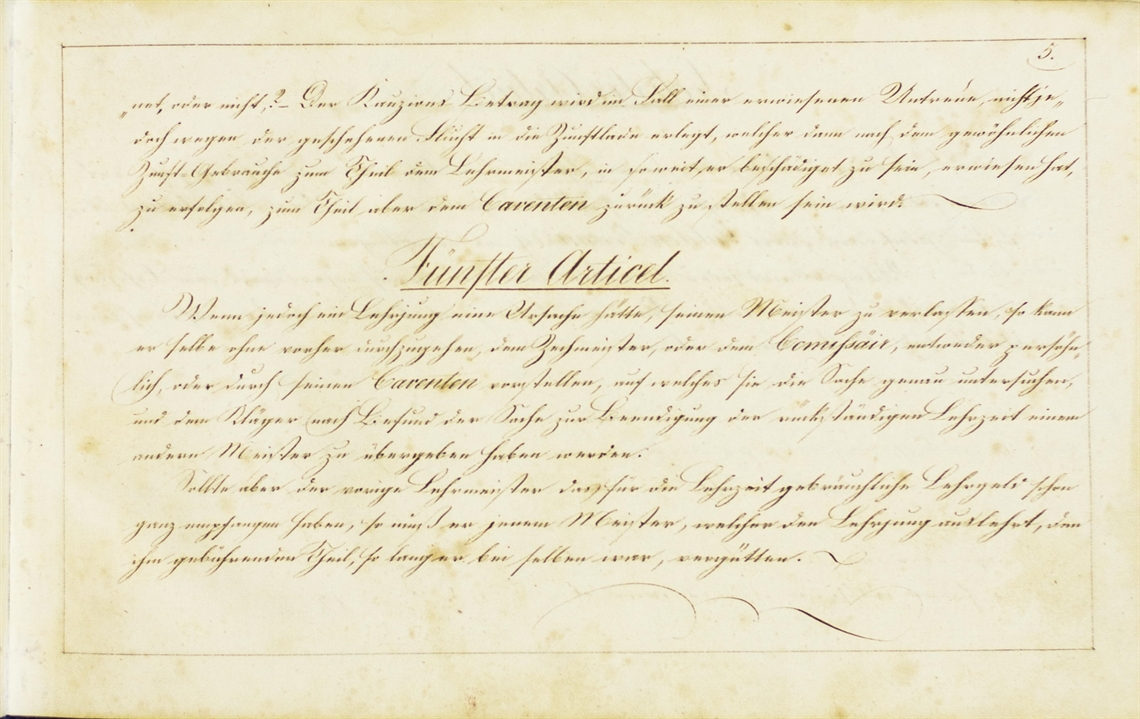 5.
„net, oder nicht,?– Der Kauzions Betrag wird im Fall einer erwiesenen Untreue, nicht je„
doch wegen der geschehenen Flucht in die Zunftlade erlegt, welcher dann nach dem gewöhnlichen
Zunft-Gebrauche zum Theil dem Lehrmeister, in soweit er beschädiget zu sein, erwiesen hat,
zu erfolgen, zum Theil aber dem Caventen zurück zu stellen sein wird.
Fünfter Articel.
Wenn jedoch ein Lehrjung eine Ursache hätte, seinen Meister zu verlassen, so kann
er selbe ohne vorher durchzugehen, dem Zechmeister, oder dem Comissair, entweder persöhn„
lich, oder durch seinen Caventen vorstellen, auf welches sie die Sache genau untersuchen,
und den Kläger nach Befund der Sache zur Beendigung der rückständigen Lehrzeit einem
andern Meister zu übergeben haben werden.
Sollte aber der vorige Lehrmeister das für die Lehrzeit gebräuchliche Lehrgeld schon
ganz empfangen haben, so muß er jenem Meister, welcher den Lehrjung auslehrt, den
ihm gebührenden Theil, so lang er bei selben war, vergütten.